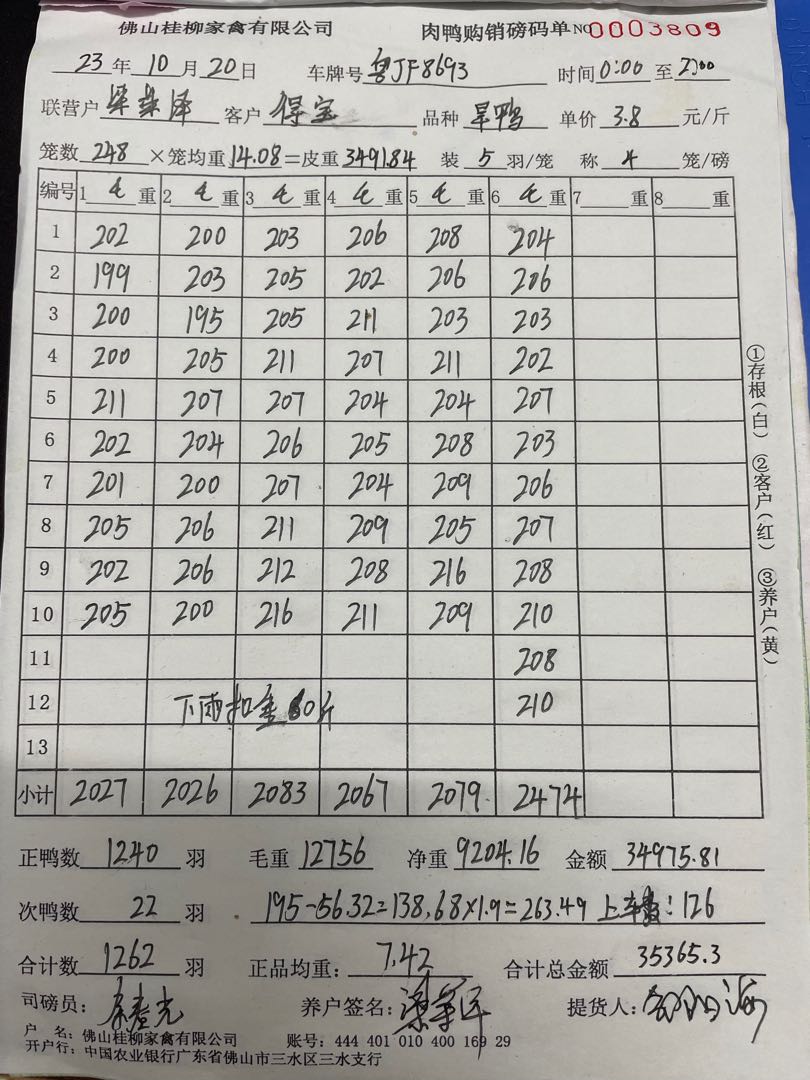 佛山桂柳家禽有限公司 肉鸭购销磅码单 NO 0003809
23年10月20日 车牌号 粤JF8693 时间 0:00 至 2:00
联营户 梁 泽 客户 得宝 品种 旱鸭 单价 3.8 元/斤
笼数 248 ×笼均重 14.08 =皮重 3491.84 装 5 羽/笼 称 4 笼/磅
编号 1 毛 重 2 毛 重 3 毛 重 4 毛 重 5 毛 重 6 毛 重 7 重 8 重
1 202 200 203 206 208 204
2 199 203 205 202 206 206
3 200 195 205 211 203 203
4 200 205 211 207 211 202
5 211 207 207 204 204 207
6 202 204 206 205 208 203
7 201 200 207 204 209 206
8 205 206 211 209 205 207
9 202 206 212 208 216 208
10 205 200 216 211 209 210
11 208
12 下雨扣重60斤 210
13
小计 2027 2026 2083 2067 2079 2474
①存根(白) ②客户(红) ③养户(黄)
正鸭数 1240 羽 毛重 12756 净重 9204.16 金额 34975.81
次鸭数 22 羽 195-56.32=138.68×1.9=263.49 上车 : 126
合计数 1262 羽 正品均重: 7.42 合计总金额 35365.3
司磅员: 养户签名: 梁 提货人:
户 名: 佛山桂柳家禽有限公司 账号: 444 401 010 400 169 29
开户行: 中国农业银行广东省佛山市三水区三水支行